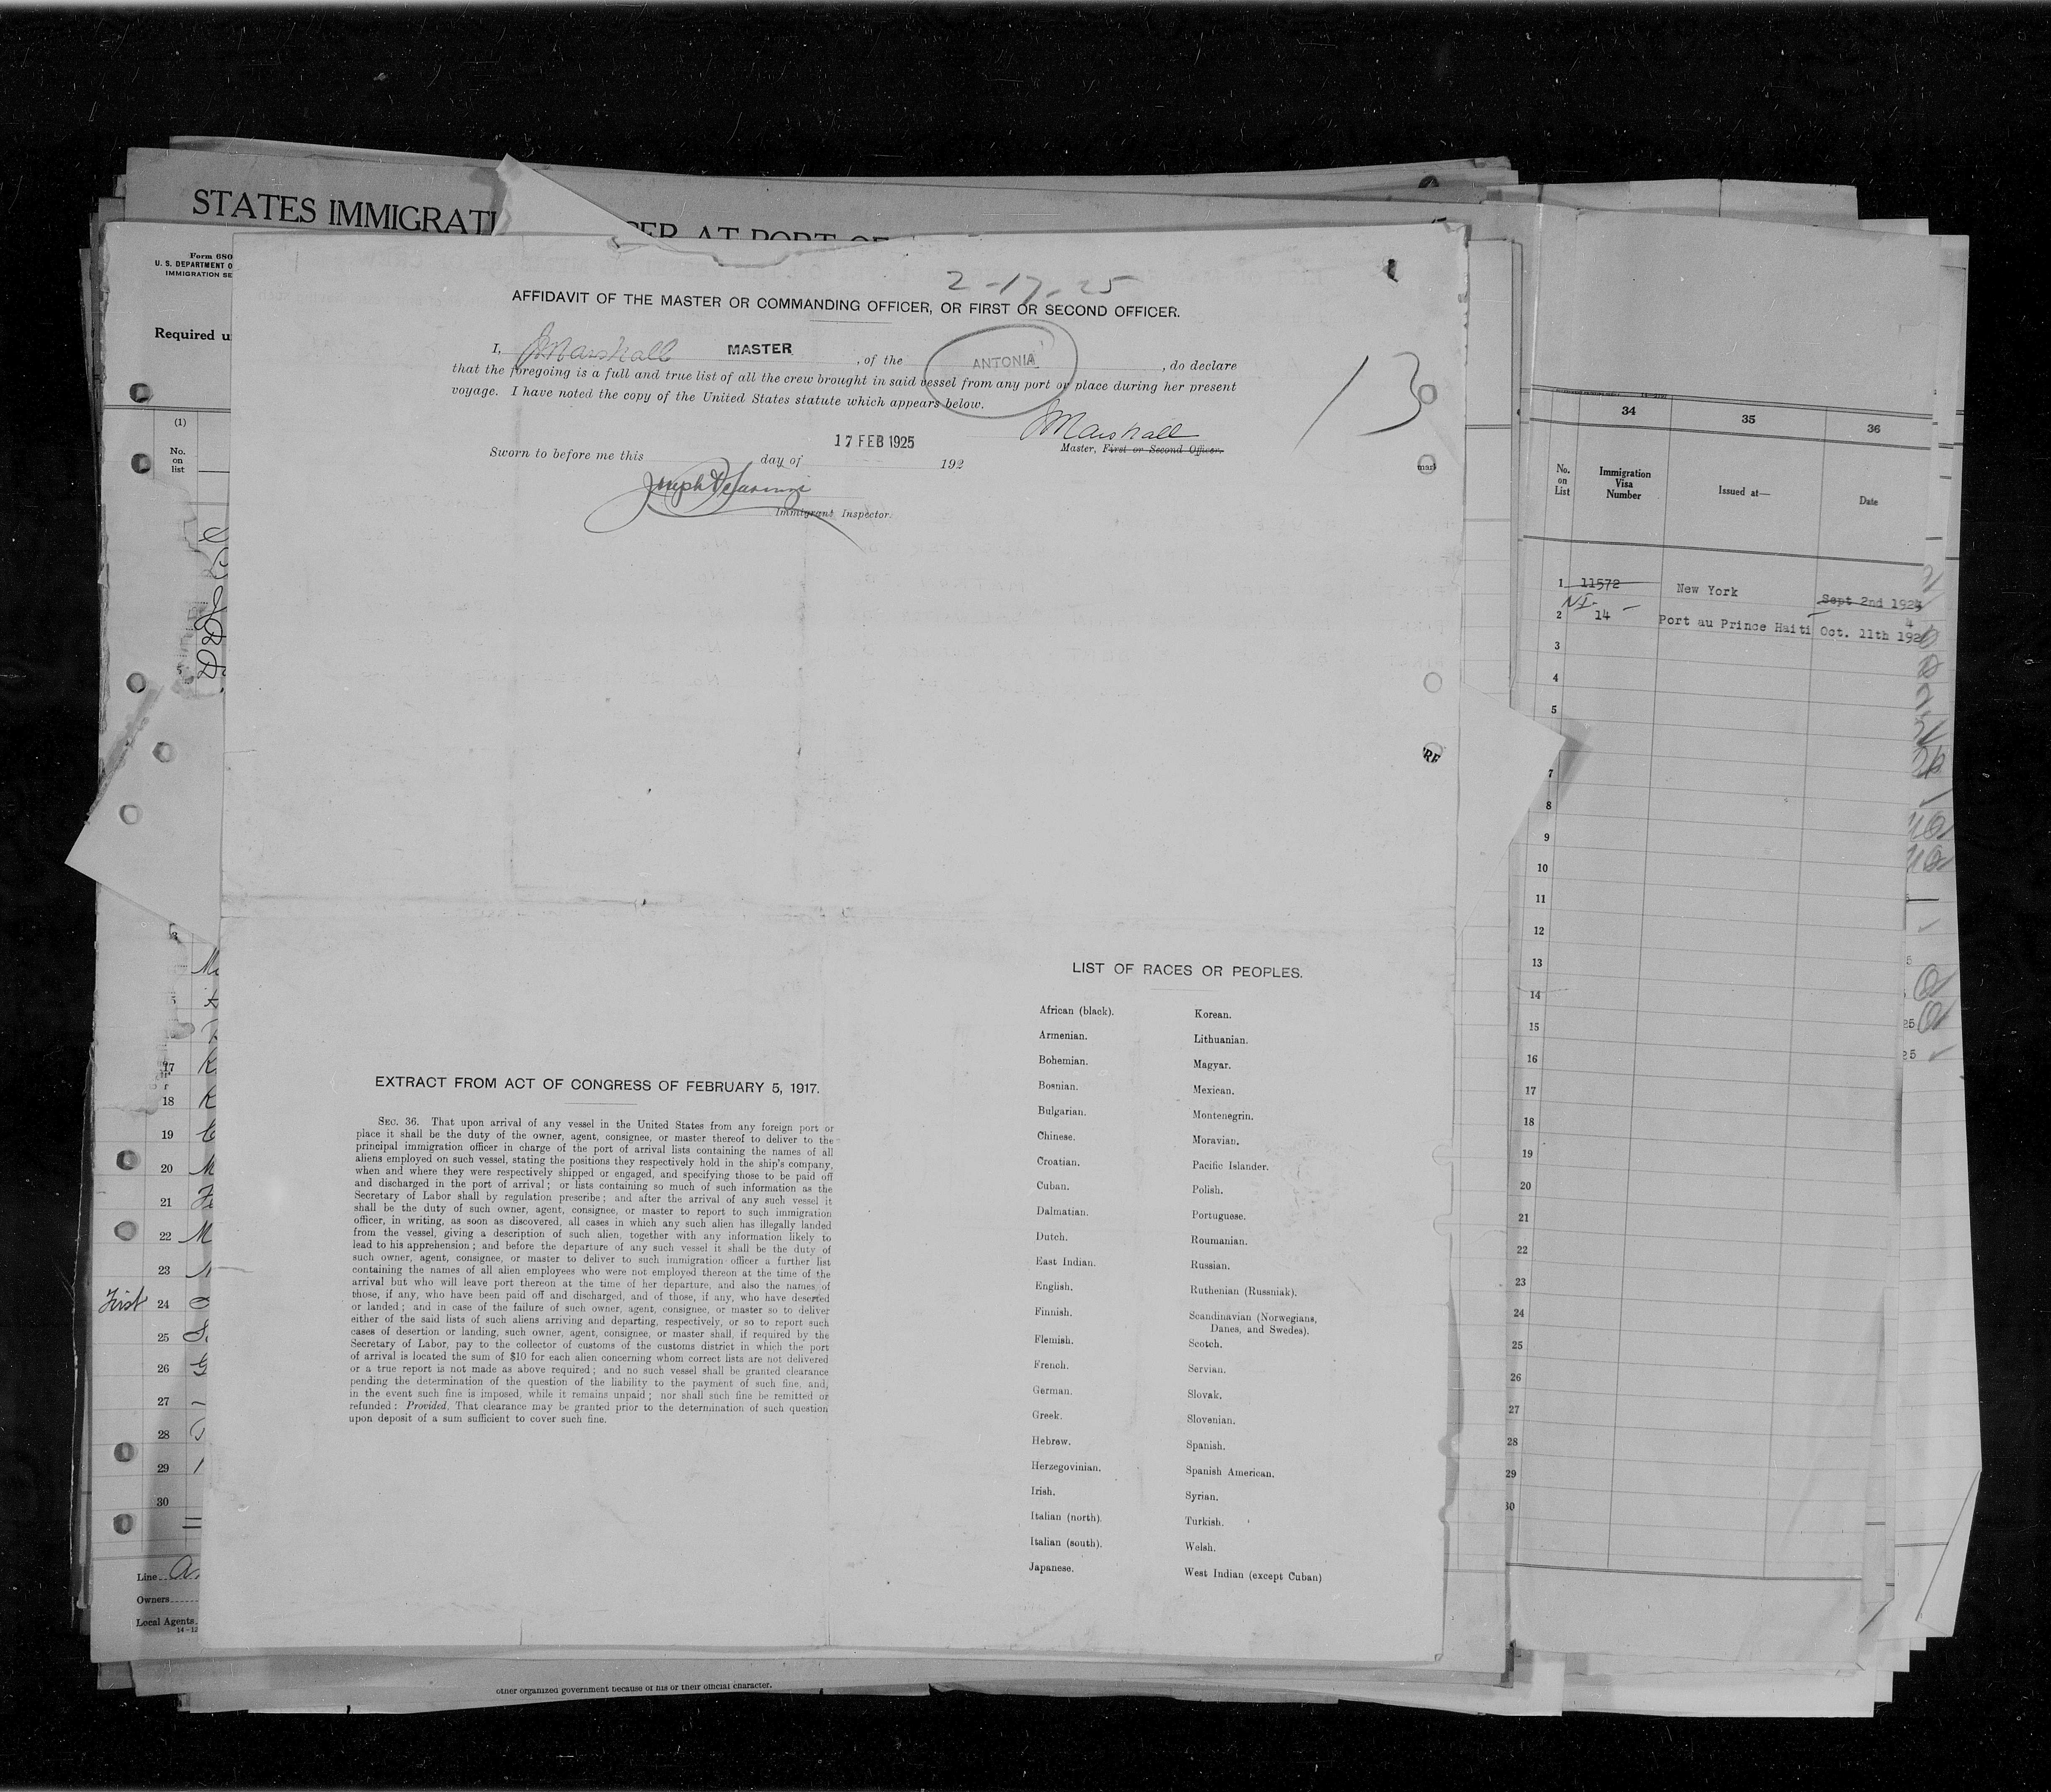 STATES IMMIGRATI
CER AT PORT OF
Form 680
U. S. DEPARTMENT O
IMMIGRATION SE
Required u
(1)
No.
on
list
2-17-25
AFFIDAVIT OF THE MASTER OR COMMANDING OFFICER, OR FIRST OR SECOND OFFICER.
I, JMarshall MASTER, of the ANTONIA, do declare
that the foregoing is a full and true list of all the crew brought in said vessel from any port or place during her present
voyage. I have noted the copy of the United States statute which appears below.
13
JMarshall
Master, First or Second Officer.
17 FEB 1925
Sworn to before me this day of 192
Joseph
Immigrant Inspector.
EXTRACT FROM ACT OF CONGRESS OF FEBRUARY 5, 1917.
SEC. 36. That upon arrival of any vessel in the United States from any foreign port or
place it shall be the duty of the owner, agent, consignee, or master thereof to deliver to the
principal immigration officer in charge of the port of arrival lists containing the names of all
aliens employed on such vessel, stating the positions they respectively hold in the ship's company,
when and where they were respectively shipped or engaged, and specifying those to be paid off
and discharged in the port of arrival; or lists containing so much of such information as the
Secretary of Labor shall by regulation prescribe; and after the arrival of any such vessel it
shall be the duty of such owner, agent, consignee, or master to report to such immigration
officer, in writing, as soon as discovered, all cases in which any such alien has illegally landed
from the vessel, giving a description of such alien, together with any information likely to
lead to his apprehension; and before the departure of any such vessel it shall be the duty of
such owner, agent, consignee, or master to deliver to such immigration officer a further list
containing the names of all alien employees who were not employed thereon at the time of the
arrival but who will leave port thereon at the time of her departure, and also the names of
those, if any, who have been paid off and discharged, and of those, if any, who have deserted
or landed; and in case of the failure of such owner, agent, consignee, or master so to deliver
either of the said lists of such aliens arriving and departing, respectively, or so to report such
cases of desertion or landing, such owner, agent, consignee, or master shall, if required by the
Secretary of Labor, pay to the collector of customs of the customs district in which the port
of arrival is located the sum of $10 for each alien concerning whom correct lists are not delivered
or a true report is not made as above required; and no such vessel shall be granted clearance
pending the determination of the question of the liability to the payment of such fine, and,
in the event such fine is imposed, while it remains unpaid; nor shall such fine be remitted or
refunded: Provided, That clearance may be granted prior to the determination of such question
upon deposit of a sum sufficient to cover such fine.
LIST OF RACES OR PEOPLES.
African (black).
Armenian.
Bohemian.
Bosnian.
Bulgarian.
Chinese.
Croatian.
Cuban.
Dalmatian.
Dutch.
East Indian.
English.
Finnish.
Flemish.
French.
German.
Greek.
Hebrew.
Herzegovinian.
Irish.
Italian (north).
Italian (south).
Japanese.
Korean.
Lithuanian.
Magyar.
Mexican.
Montenegrin.
Moravian.
Pacific Islander.
Polish.
Portuguese.
Roumanian.
Russian.
Ruthenian (Russniak).
Scandinavian (Norwegians,
Danes, and Swedes).
Scotch.
Servian.
Slovak.
Slovenian.
Spanish.
Spanish American.
Syrian.
Turkish.
Welsh.
West Indian (except Cuban)
17
18
19
20
21
22
23
First 24
25
26
27
28
29
30
Line
Owners
Local Agents
other organized government because of his or their official character.
34 35 36
No.
on
List
Immigration
Visa
Number
Issued at—
Date
1 11572 New York Sept 2nd 1924
NI-
2 14 Port au Prince Haiti Oct. 11th 192
4
3
4
5
7
8
9
10
11
12
13
14
15
16
17
18
19
20
21
22
23
24
25
26
27
28
29
30